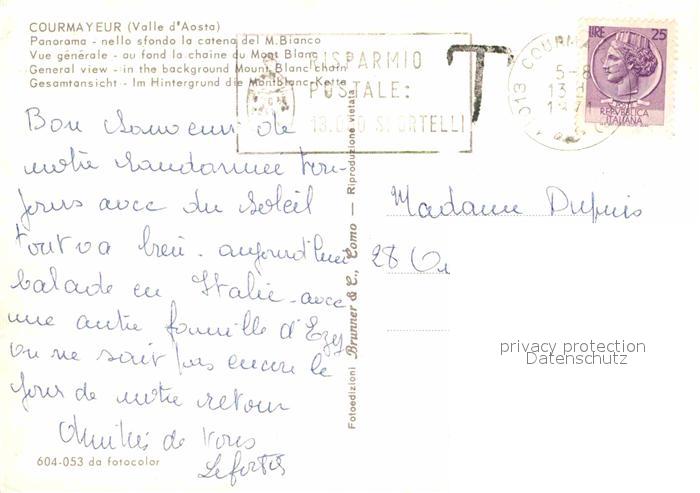 COURMAYEUR (Valle d'Aosta)
Panorama - nello sfondo la catena del M. Bianco
Vue générale - au fond la chaîne du Mont Blanc
General view - in the background Mount Blanc chain
Gesamtansicht - Im Hintergrund die Montblanc-Kette
RISPARMIO
POSTALE:
SPORTELLI
T
COURMA
5-8
13
LIRE 25
REPUBBLICA
ITALIANA
Bon souvenir de
notre randonnée tou-
jours avec du soleil
tout va bien - aujourd'hui
balade en Italie - avec
une autre famille d'Ezy
on ne sait pas encore le
jour de notre retour
Amitiés de vous
Madame Dupuis
28
Fotoedizioni Brunner & C., Como — Riproduzione vietata
604-053 da fotocolor
privacy protection
Datenschutz